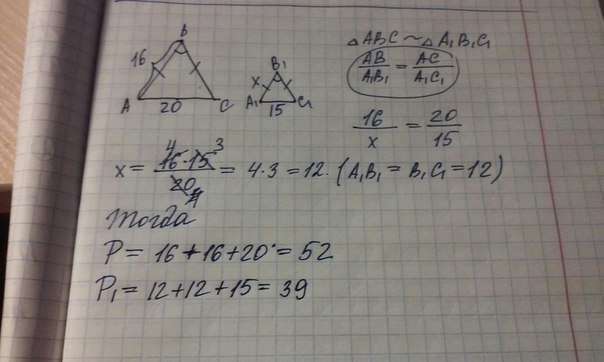 B
16
A
20
C
B₁
x
A₁
C₁
15
△ABC ~ △A₁B₁C₁
AB/A₁B₁ = AC/A₁C₁
16/x = 20/15
x = 16·15/20 = 4·3 = 12. (A₁B₁ = B₁C₁ = 12)
4 3
4
Тогда
P = 16 + 16 + 20 = 52
P₁ = 12 + 12 + 15 = 39